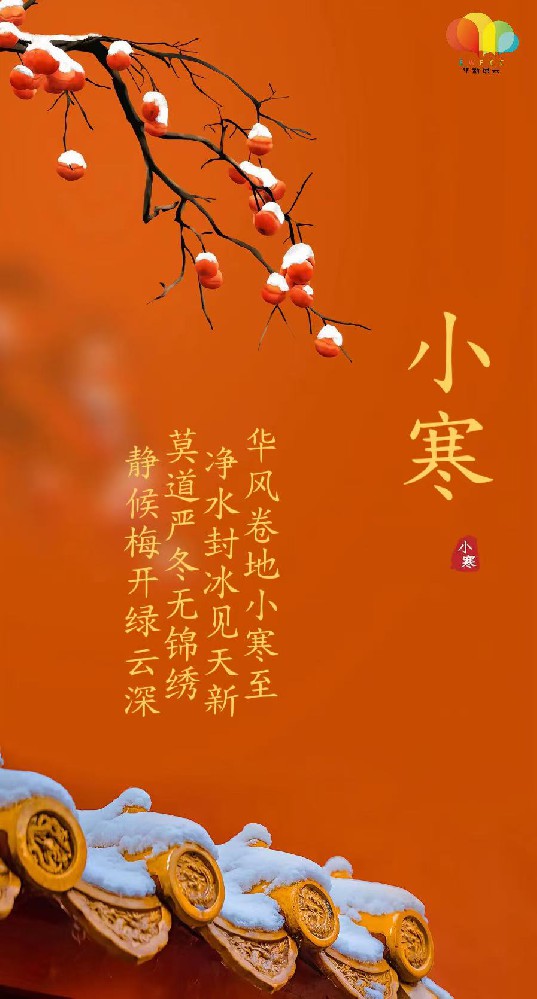 小寒
小寒
华风卷地小寒至
净水封冰见天新
莫道严冬无锦绣
静候梅开绿云深